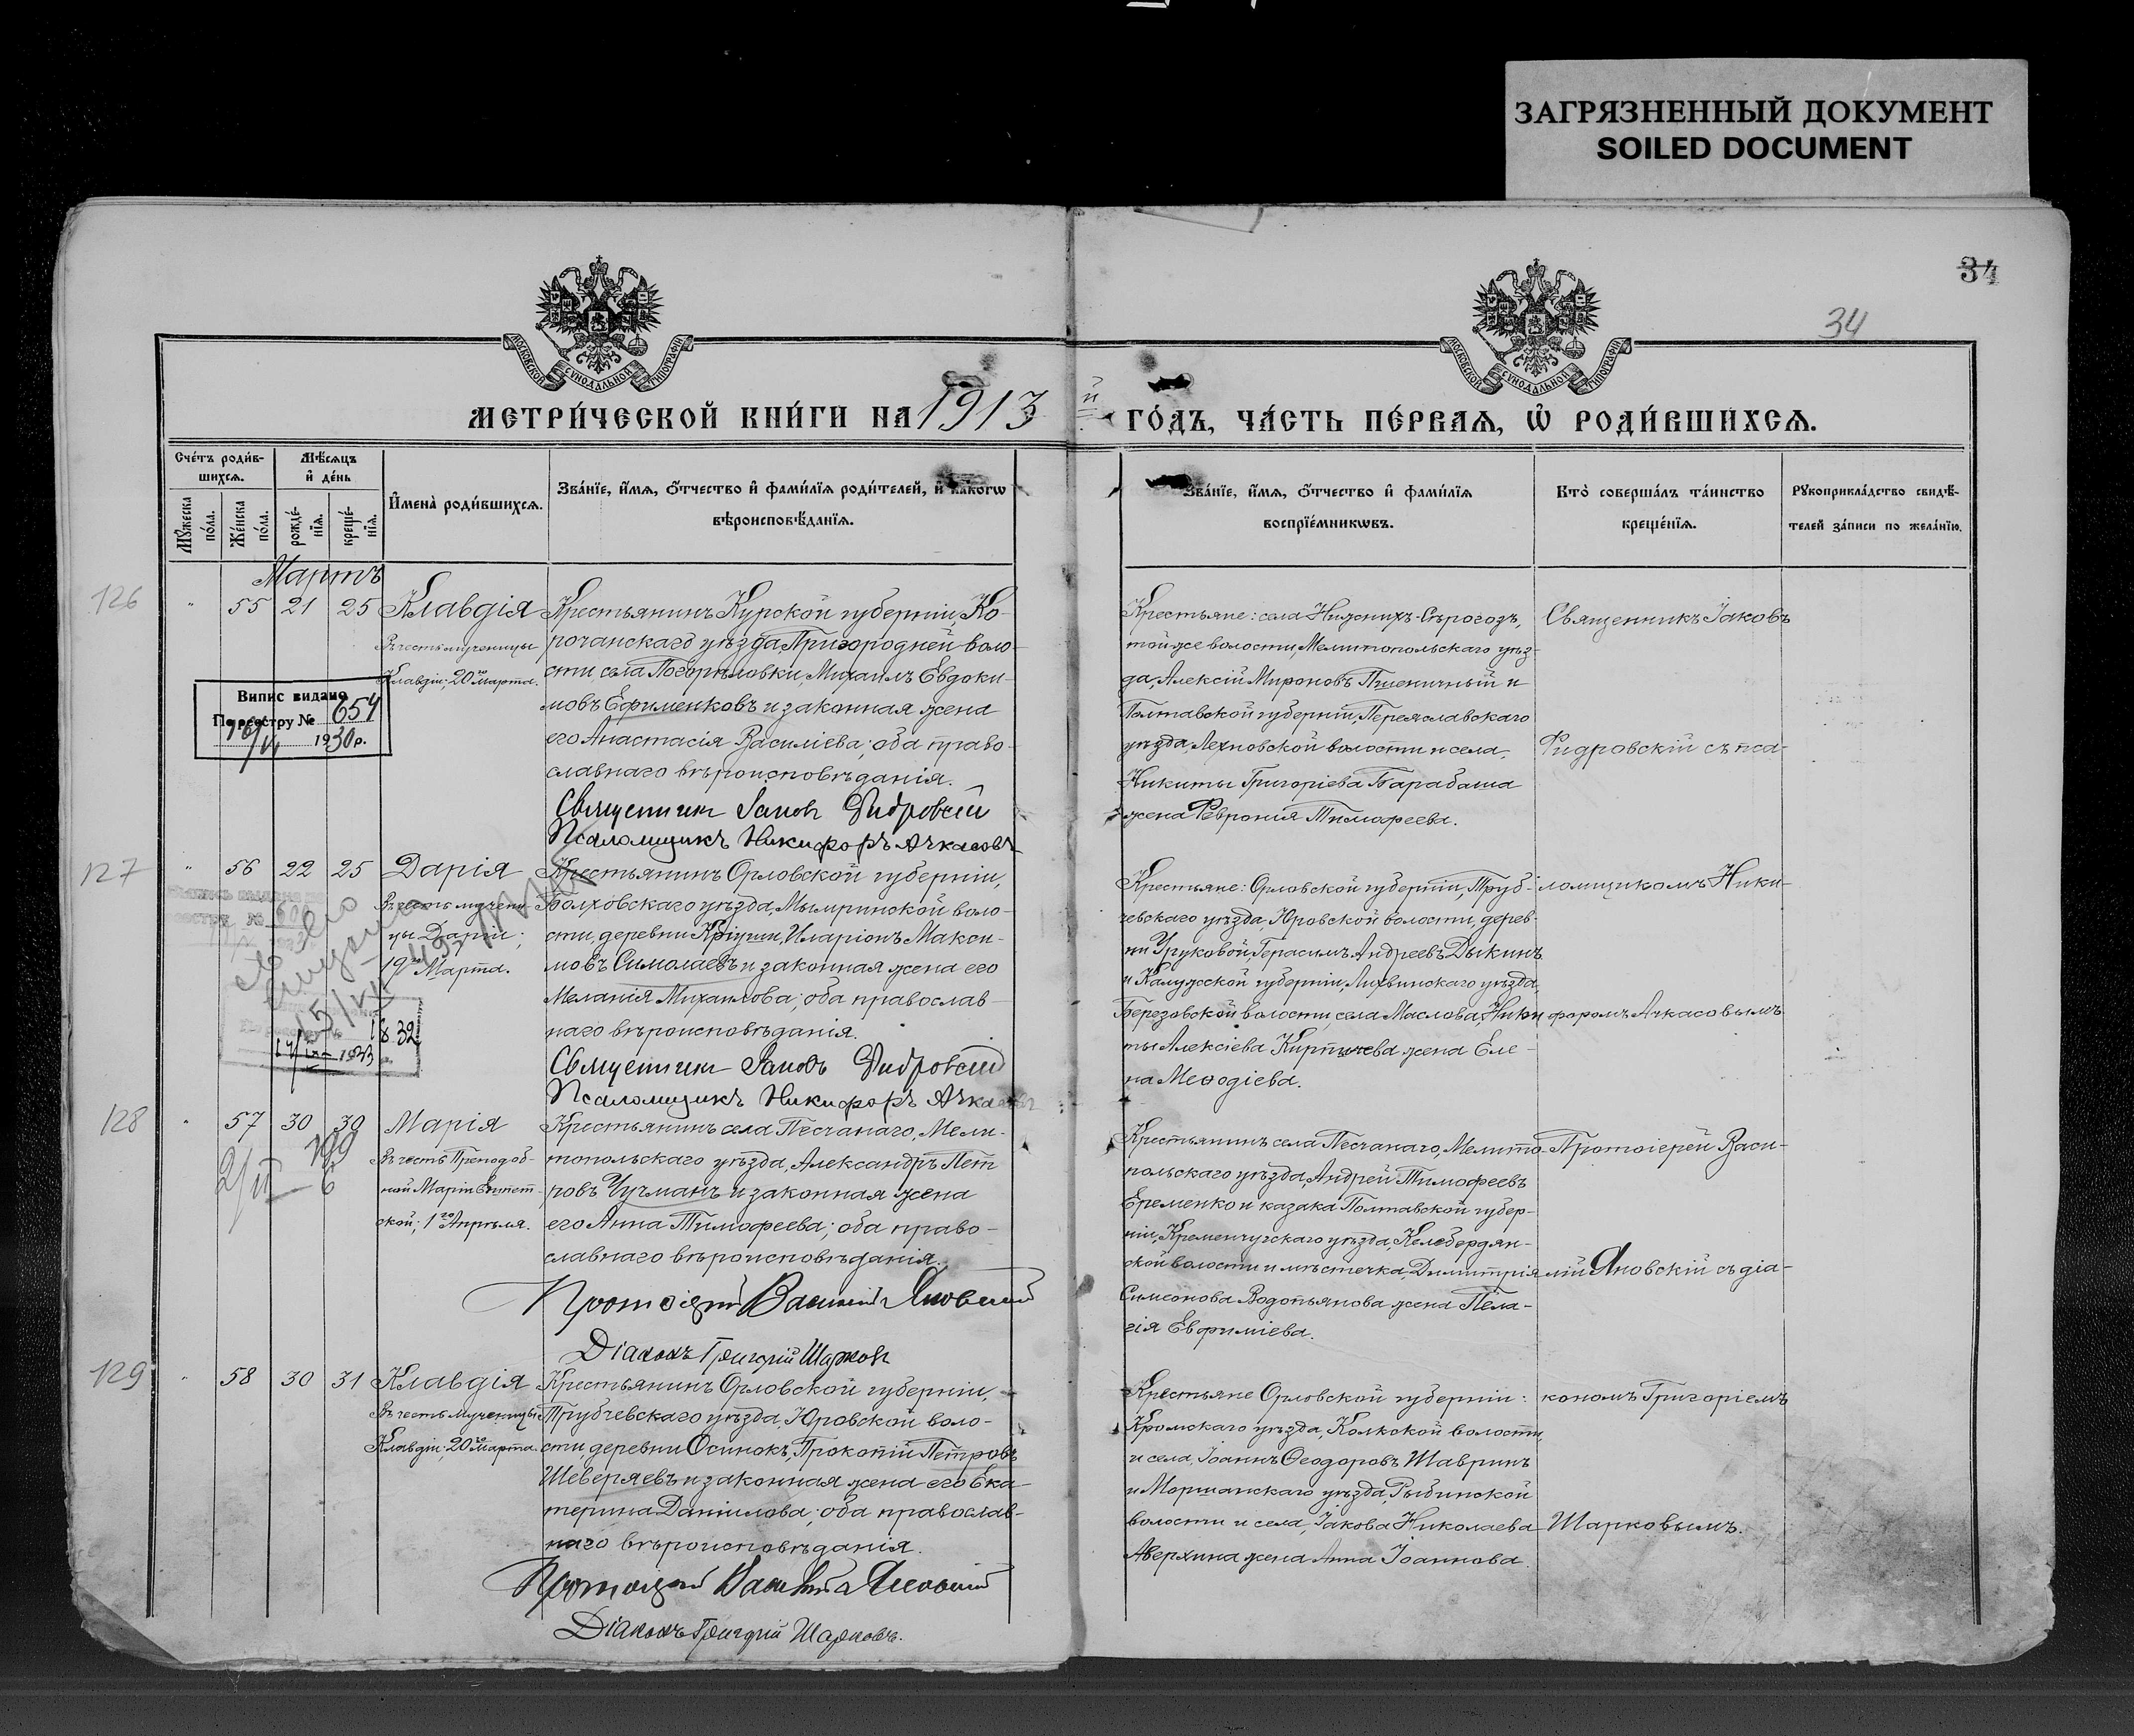 ЗАГРЯЗНЕННЫЙ ДОКУМЕНТ
SOILED DOCUMENT
34
34
МОСКОВСКОЙ СУНОДАЛЬНОЙ ТИПОГРАФІИ
МОСКОВСКОЙ СУНОДАЛЬНОЙ ТИПОГРАФІИ
МЕТРИ́ЧЕСКОЙ КНИ́ГИ НА 1913 й ГО́ДЪ, ЧА́СТЬ ПЕ́РВАѦ, Ѡ҆ РОДИ́ВШИХСѦ.
Сче́тъ роди́в-
шихсѧ.
Мꙋ́жеска по́ла.
Же́нска по́ла.
Мѣ́сѧцъ
и҆ де́нь
рожде́-
нїѧ.
креще́-
нїѧ.
И҆мена̀ роди́вшихсѧ.
Зва́нїе, и҆́мѧ, ѻ҆́тчество и҆ фами́лїѧ роди́телей, и҆ како́гѡ
вѣроисповѣ́данїѧ.
Зва́нїе, и҆́мѧ, ѻ҆́тчество и҆ фами́лїѧ
воспрїе́мникѡвъ.
Кто̀ соверша́лъ та́инство
креще́нїѧ.
Рꙋкоприкла́дство свидѣ́-
телей за́писи по жела́нїю.
Мартъ
126
" 55 21 25
Клавдія
Въ честь мученицы
Клавдіи; 20го Марта.
Випис видано
По реєстру № 654
1930 р.
Крестьянинъ Курской губерніи, Ко-
рочанскаго уѣзда, Пригородней воло-
сти, села Погорѣловки, Михаилъ Евдоки-
мовъ Ефименковъ и законная жена
его Анастасія Василіева; оба право-
славнаго вѣроисповѣданія.
Священникъ Іаковъ Фидровскій
Псаломщикъ Никифоръ Ачкасовъ
Крестьяне: села Нижнихъ-Сѣрогозъ,
той же волости, Мелитопольскаго уѣз-
да, Алексій Мироновъ Пшеничный и
Полтавской губерніи, Переяславскаго
уѣзда, Лехновской волости и села,
Никиты Григоріева Барабаша
жена Феvронія Тимофеева.
Священникъ Іаковъ
Фидровскій съ пса-
127
" 56 22 25
Дарія
Въ честь мучени-
цы Даріи;
19го Марта.
1832
1933
Крестьянинъ Орловской губерніи,
Болховскаго уѣзда, Мымринской воло-
сти, деревни Иларіонъ Макси-
мовъ Симолаевъ и законная жена его
Меланія Михаилова; оба православ-
наго вѣроисповѣданія.
Священникъ Іаковъ Фидровскій
Псаломщикъ Никифоръ Ачкасовъ
Крестьяне: Орловской губерніи, Труб-
чевскаго уѣзда, Юровской волости, дерев-
ни Уруковой, Герасимъ Андреевъ Дыкинъ
и Калужской губерніи, Лихвинскаго уѣзда,
Березовской волости, села Маслова, Ники-
ты Алексіева Кирпичева жена Еле-
на Меѳодіева.
ломщикомъ Ники-
форомъ Ачкасовымъ
128
" 57 30 30
Марія
Въ честь Преподоб-
ной Маріи Египет-
ской; 1го Апрѣля.
Крестьянинъ села Песчанаго, Мели-
топольскаго уѣзда, Александръ Пет-
ровъ Чучманъ и законная жена
его Анна Тимофеева; оба право-
славнаго вѣроисповѣданія.
Протоіерей Василій Яновскій
Діаконъ Григорій Шарковъ
Крестьянинъ села Песчанаго, Мелито-
польскаго уѣзда, Андрей Тимофеевъ
Еременко и казака Полтавской губер-
ніи, Кременчугскаго уѣзда, Келебердян-
ской волости и мѣстечка, Димитрія
Симеонова Водопьянова жена Пела-
гія Евфиміева.
Протоіерей Васи-
лій Яновскій съ діа-
129
" 58 30 31
Клавдія
Въ честь мученицы
Клавдіи; 20го Марта.
Крестьянинъ Орловской губерніи,
Трубчевскаго уѣзда, Юровской воло-
сти, деревни Осинокъ, Прокопій Петровъ
Шеверяевъ и законная жена его Ека-
терина Даніилова; оба православ-
наго вѣроисповѣданія.
Протоіерей Василій Яновскій
Діаконъ Григорій Шарковъ.
Крестьяне Орловской губерніи:
Кромскаго уѣзда, Колкской волости
и села, Іоаннъ Ѳеодоровъ Шавринъ
и Моршанскаго уѣзда, Рыбинской
волости и села, Іакова Николаева
Аверхина жена Анна Іоаннова.
кономъ Григоріемъ
Шарковымъ.